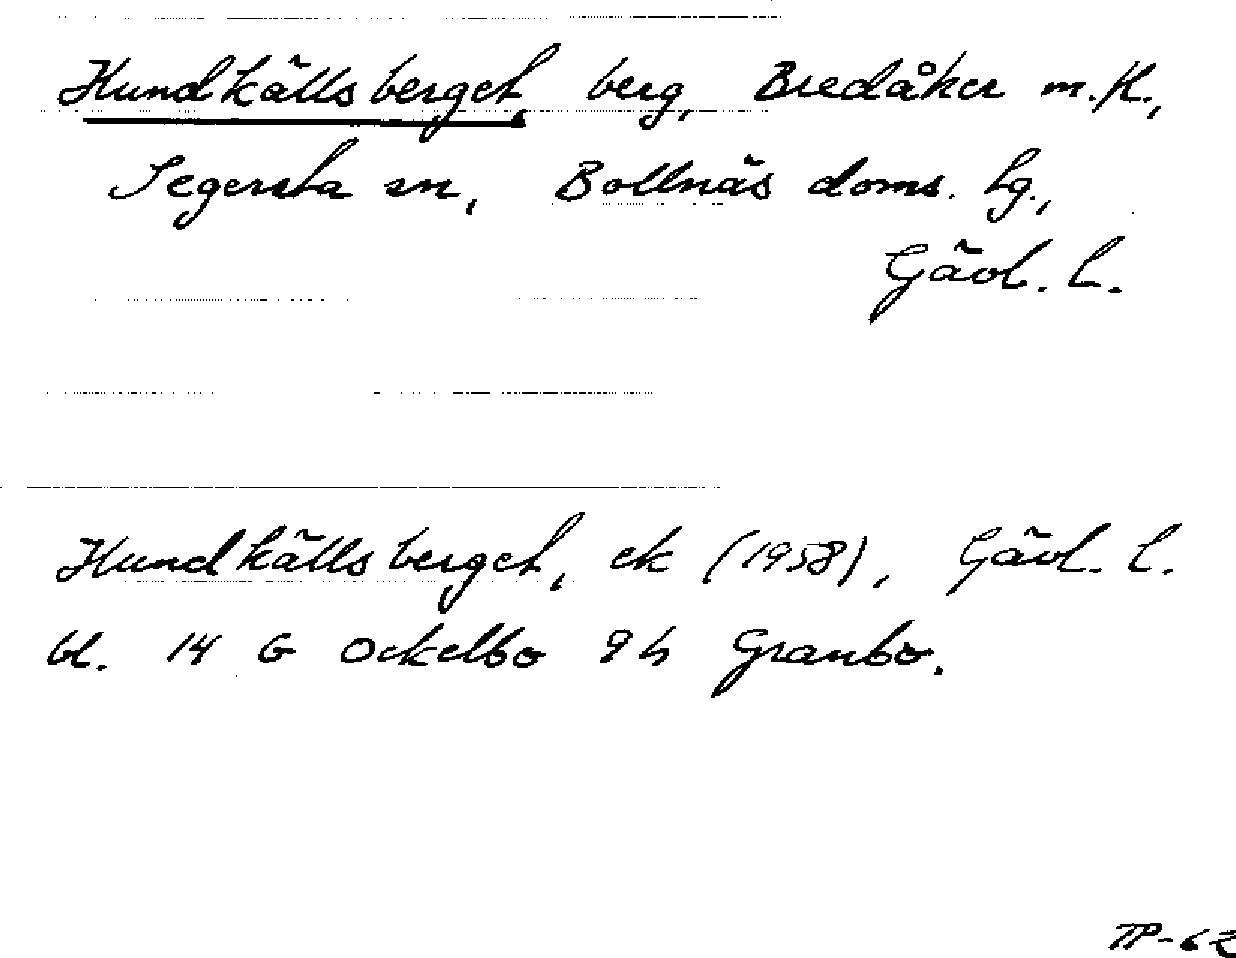 Hundkällsberget, berg, Bredåker m.fl.,
Segersta sn, Bollnäs doms. lg.,
Gävl. l.
Hundkällsberget, ek (1958), Gävl. l.
bl. 14 G Ockelbo 9 h Granbo.
TP-62